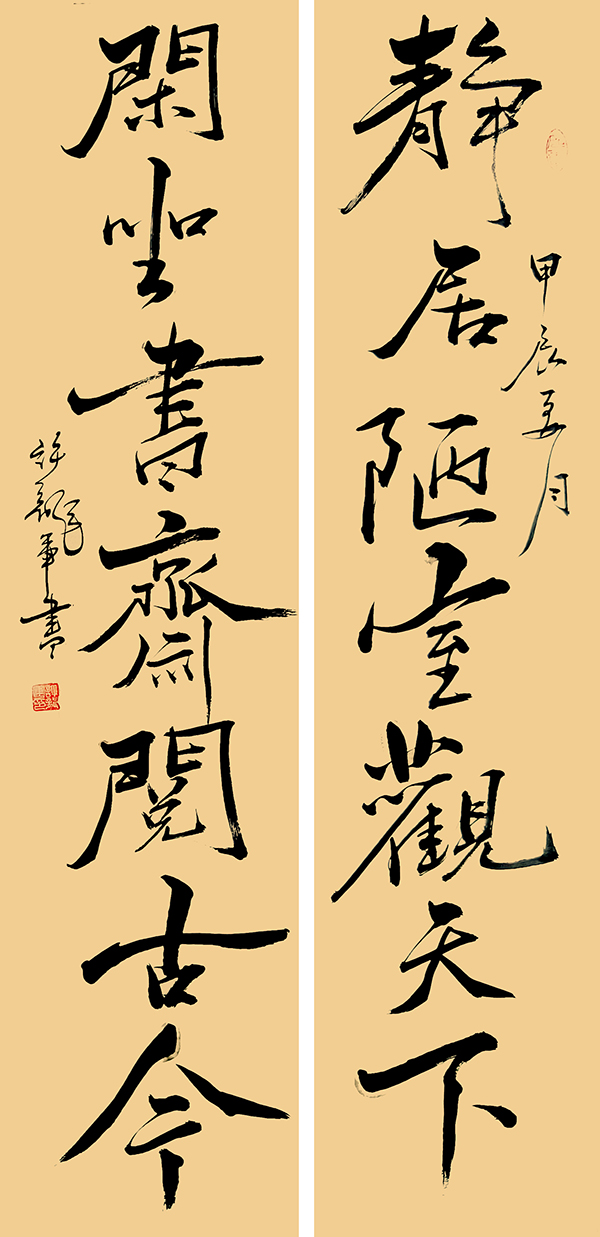 靜居陋室觀天下
甲辰夏月
閑坐書齋閱古今